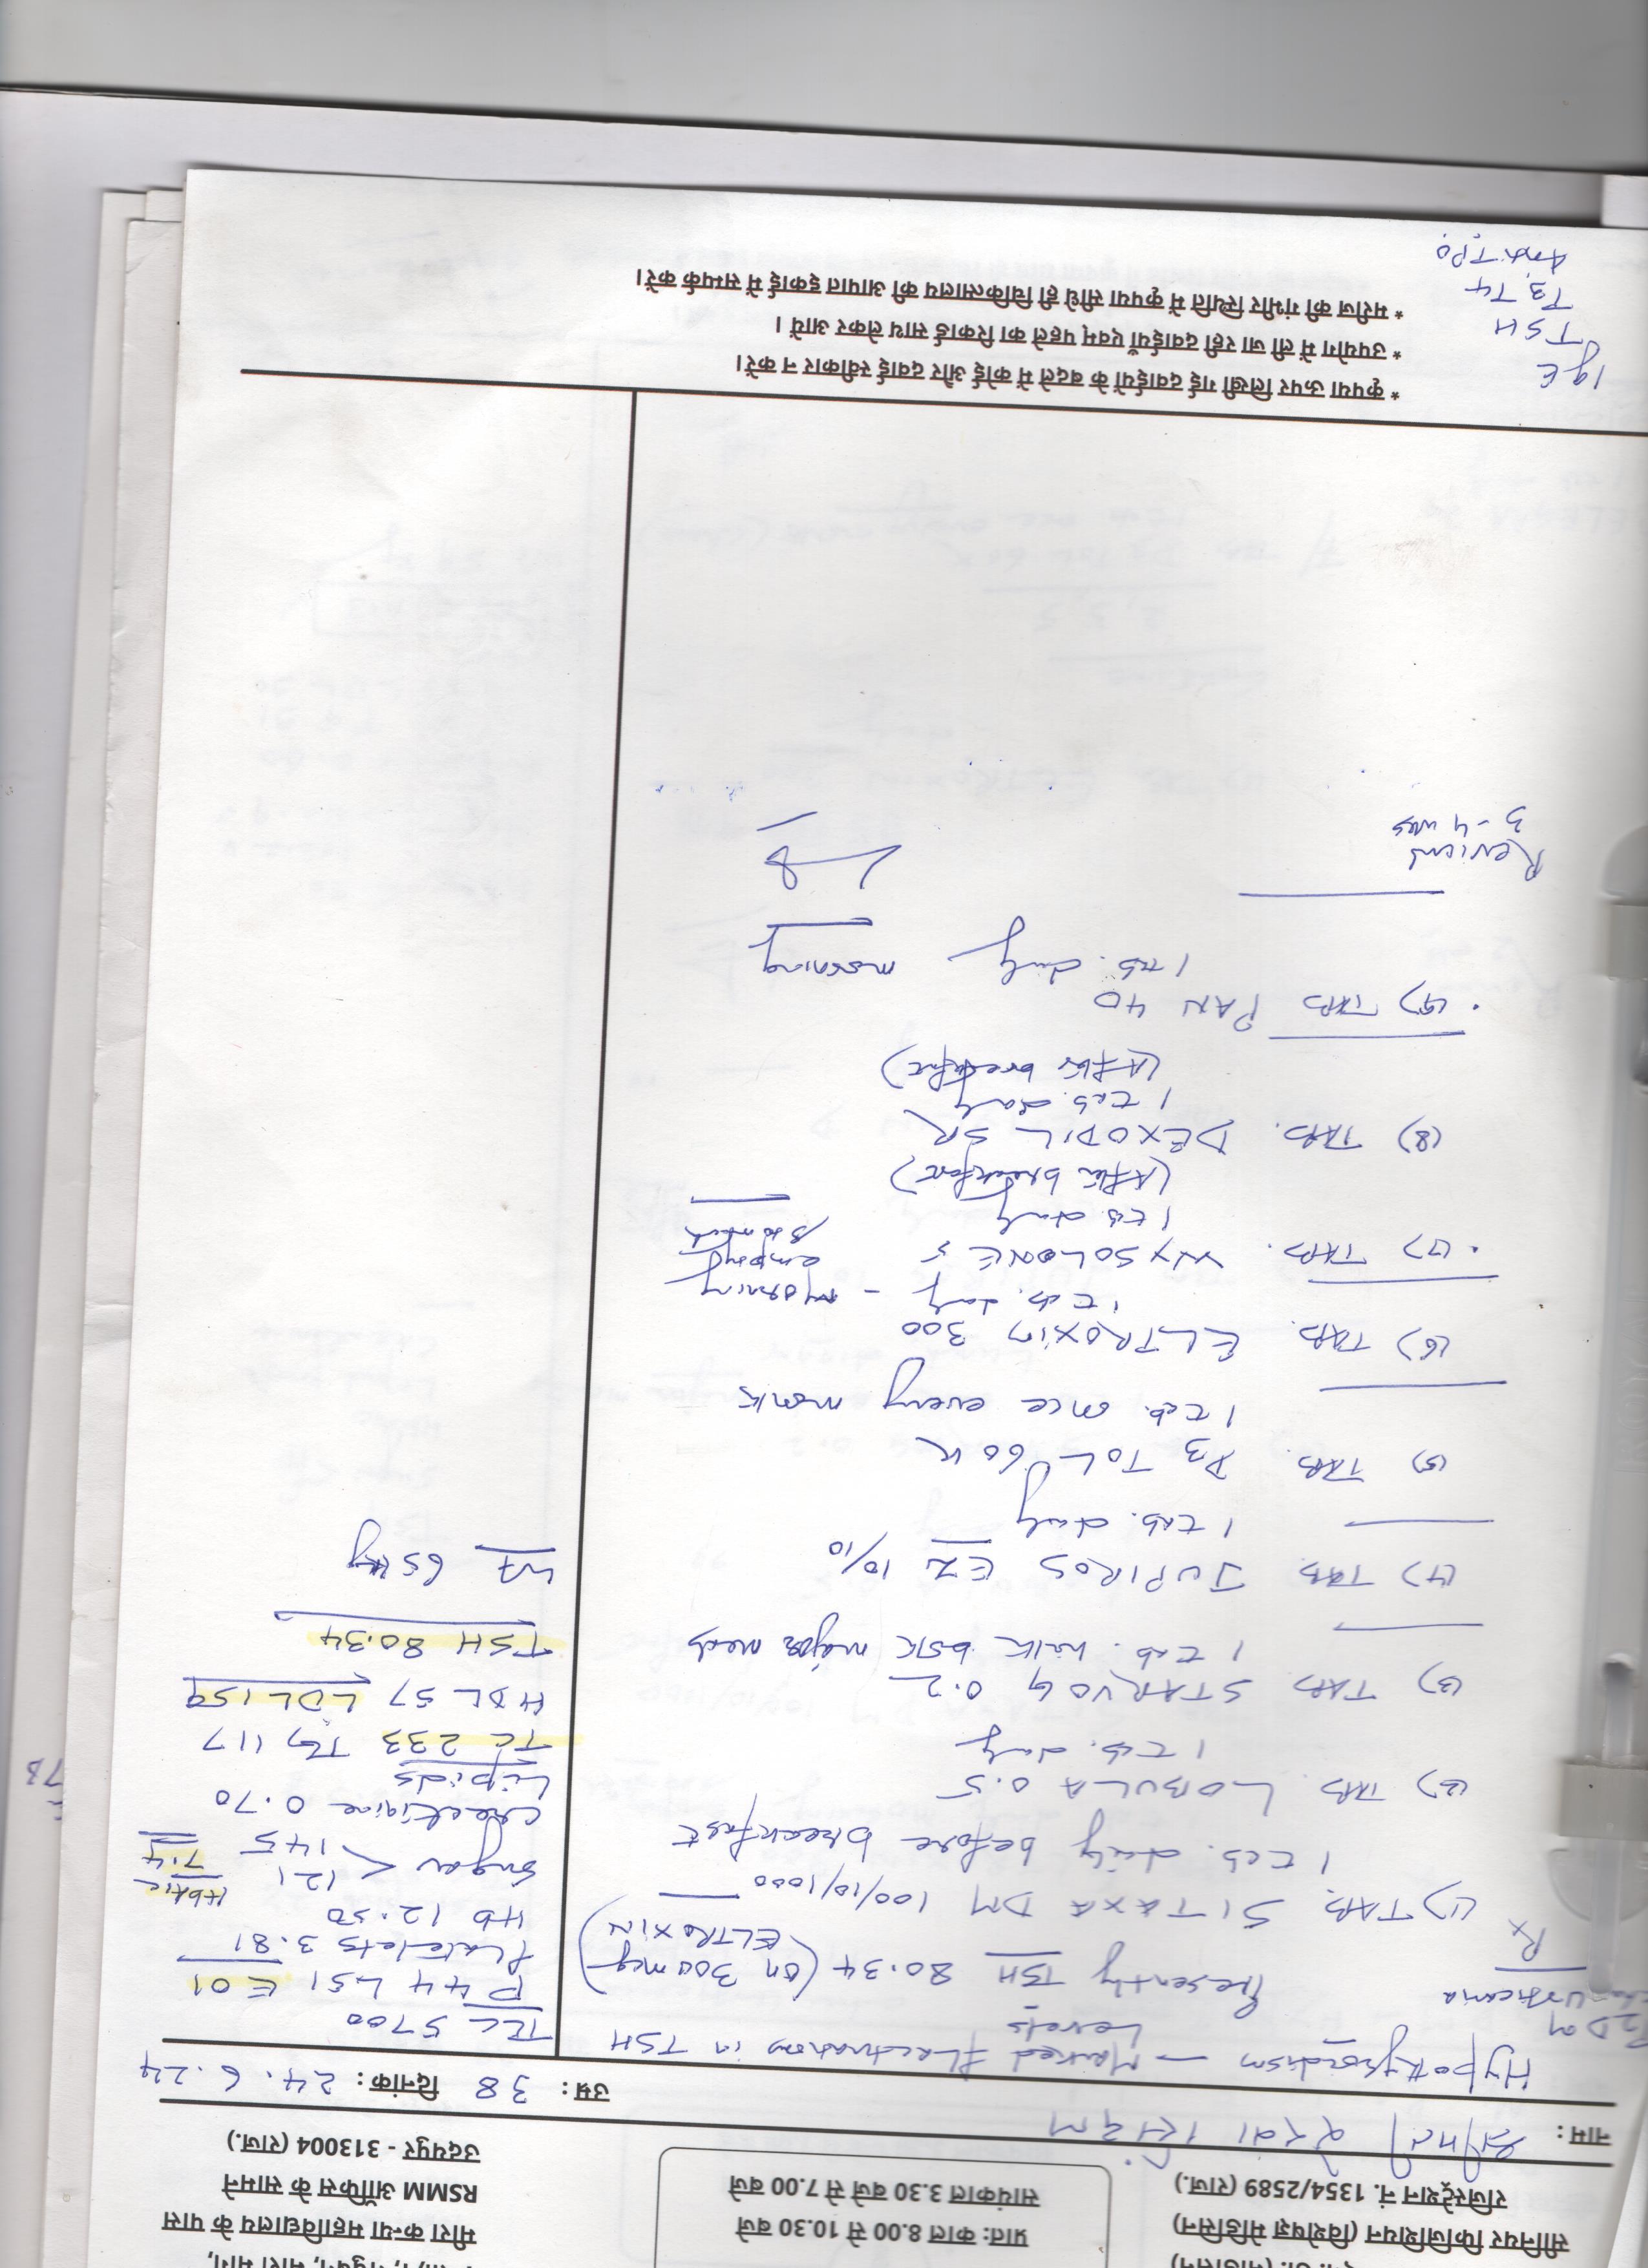 सीनियर फिजिशियन (विशेषज्ञ मेडिसिन)
रजिस्ट्रेशन नं. 1354/2589 (राज.)
प्रातः काल 8.00 से 10.30 बजे
सायंकाल 3.30 बजे से 7.00 बजे
मीरा कन्या महाविद्यालय के पास
RSMM ऑफिस के सामने
उदयपुर - 313004 (राज.)
नाम : श्रीमती
उम्र : 38 दिनांक : 24.6.24
Hypothyroidism — Marked fluctuations in TSH
Levels
T2DM
Urticaria
Presently TSH 80.34 (on 300mcg
ELTROXIN)
Rx
(1) TAB. SITAXA DM 100/10/1000
1 tab. daily before breakfast
(2) TAB. LOBULA 0.5
1 tab. daily
(3) TAB STARVOG 0.2
1 tab. with both major meals
(4) TAB JUPIROS EZ 10/10
1 tab. daily
(5) TAB. D3 TOL 60K
1 tab. once every month
(6) TAB. ELTROXIN 300
1 tab. daily - morning
empty
stomach
(7) TAB. WYSOLONE 5
1 tab. daily
(After breakfast)
(8) TAB. DEXODIL SR
1 tab. daily
(After breakfast)
(9) TAB PAN 40
1 tab. daily morning
Review
3-4 wks
TLC 5700
P 44 L 51 E 01
Platelets 3.81
Hb 12.50
Sugar < 121
145
HbA1c
7.4
Creatinine 0.70
Lipids
TC 233 TG 117
HDL 57 LDL 159
TSH 80.34
WT 65 kg
IgE
TSH
T3, T4
Anti TPO
* कृपया ऊपर लिखी गई दवाईयों के बदले में कोई और दवाई स्वीकार न करें।
* उपयोग में ली जा रही दवाईयाँ एवम् पहले का रिकार्ड साथ लेकर आयें ।
* मरीज की गंभीर स्थिति में कृपया सीधे ही चिकित्सालय की आपात इकाई में सम्पर्क करें।